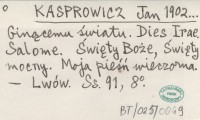 KASPROWICZ Jan 1902...
Ginącemu światu. Dies Irae
Salome. Święty Boże, Święty
mocny. Moja pieśń wieczorna.
— Lwów. Ss. 91, 8°.
BT/025/0049